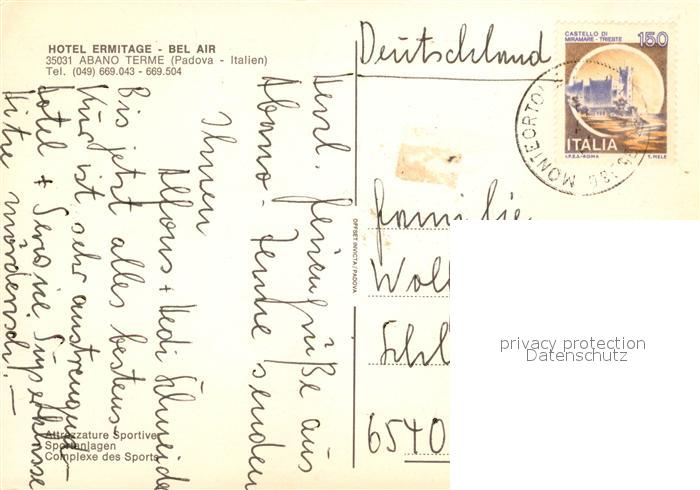 HOTEL ERMITAGE - BEL AIR
35031 ABANO TERME (Padova - Italien)
Tel. (049) 669.043 - 669.504
Herzl. Feriengrüße aus
Abano-Terme senden
Ihnen
Alfons + Hedi Schneider
Bis jetzt alles bestens,
Kur ist sehr anstrengend
Hotel + Service Superklasse
Hitze mörderisch! —
Attrezzature Sportive
Sportanlagen
Complexe des Sports
OFFSET INVICTA / PADOVA
Deutschland
CASTELLO DI
MIRAMARE - TRIESTE
150
ITALIA
I.P.Z.S. - ROMA
E. MELE
MONTEORTO
Familie
Wol
Schl
6540
privacy protection
Datenschutz